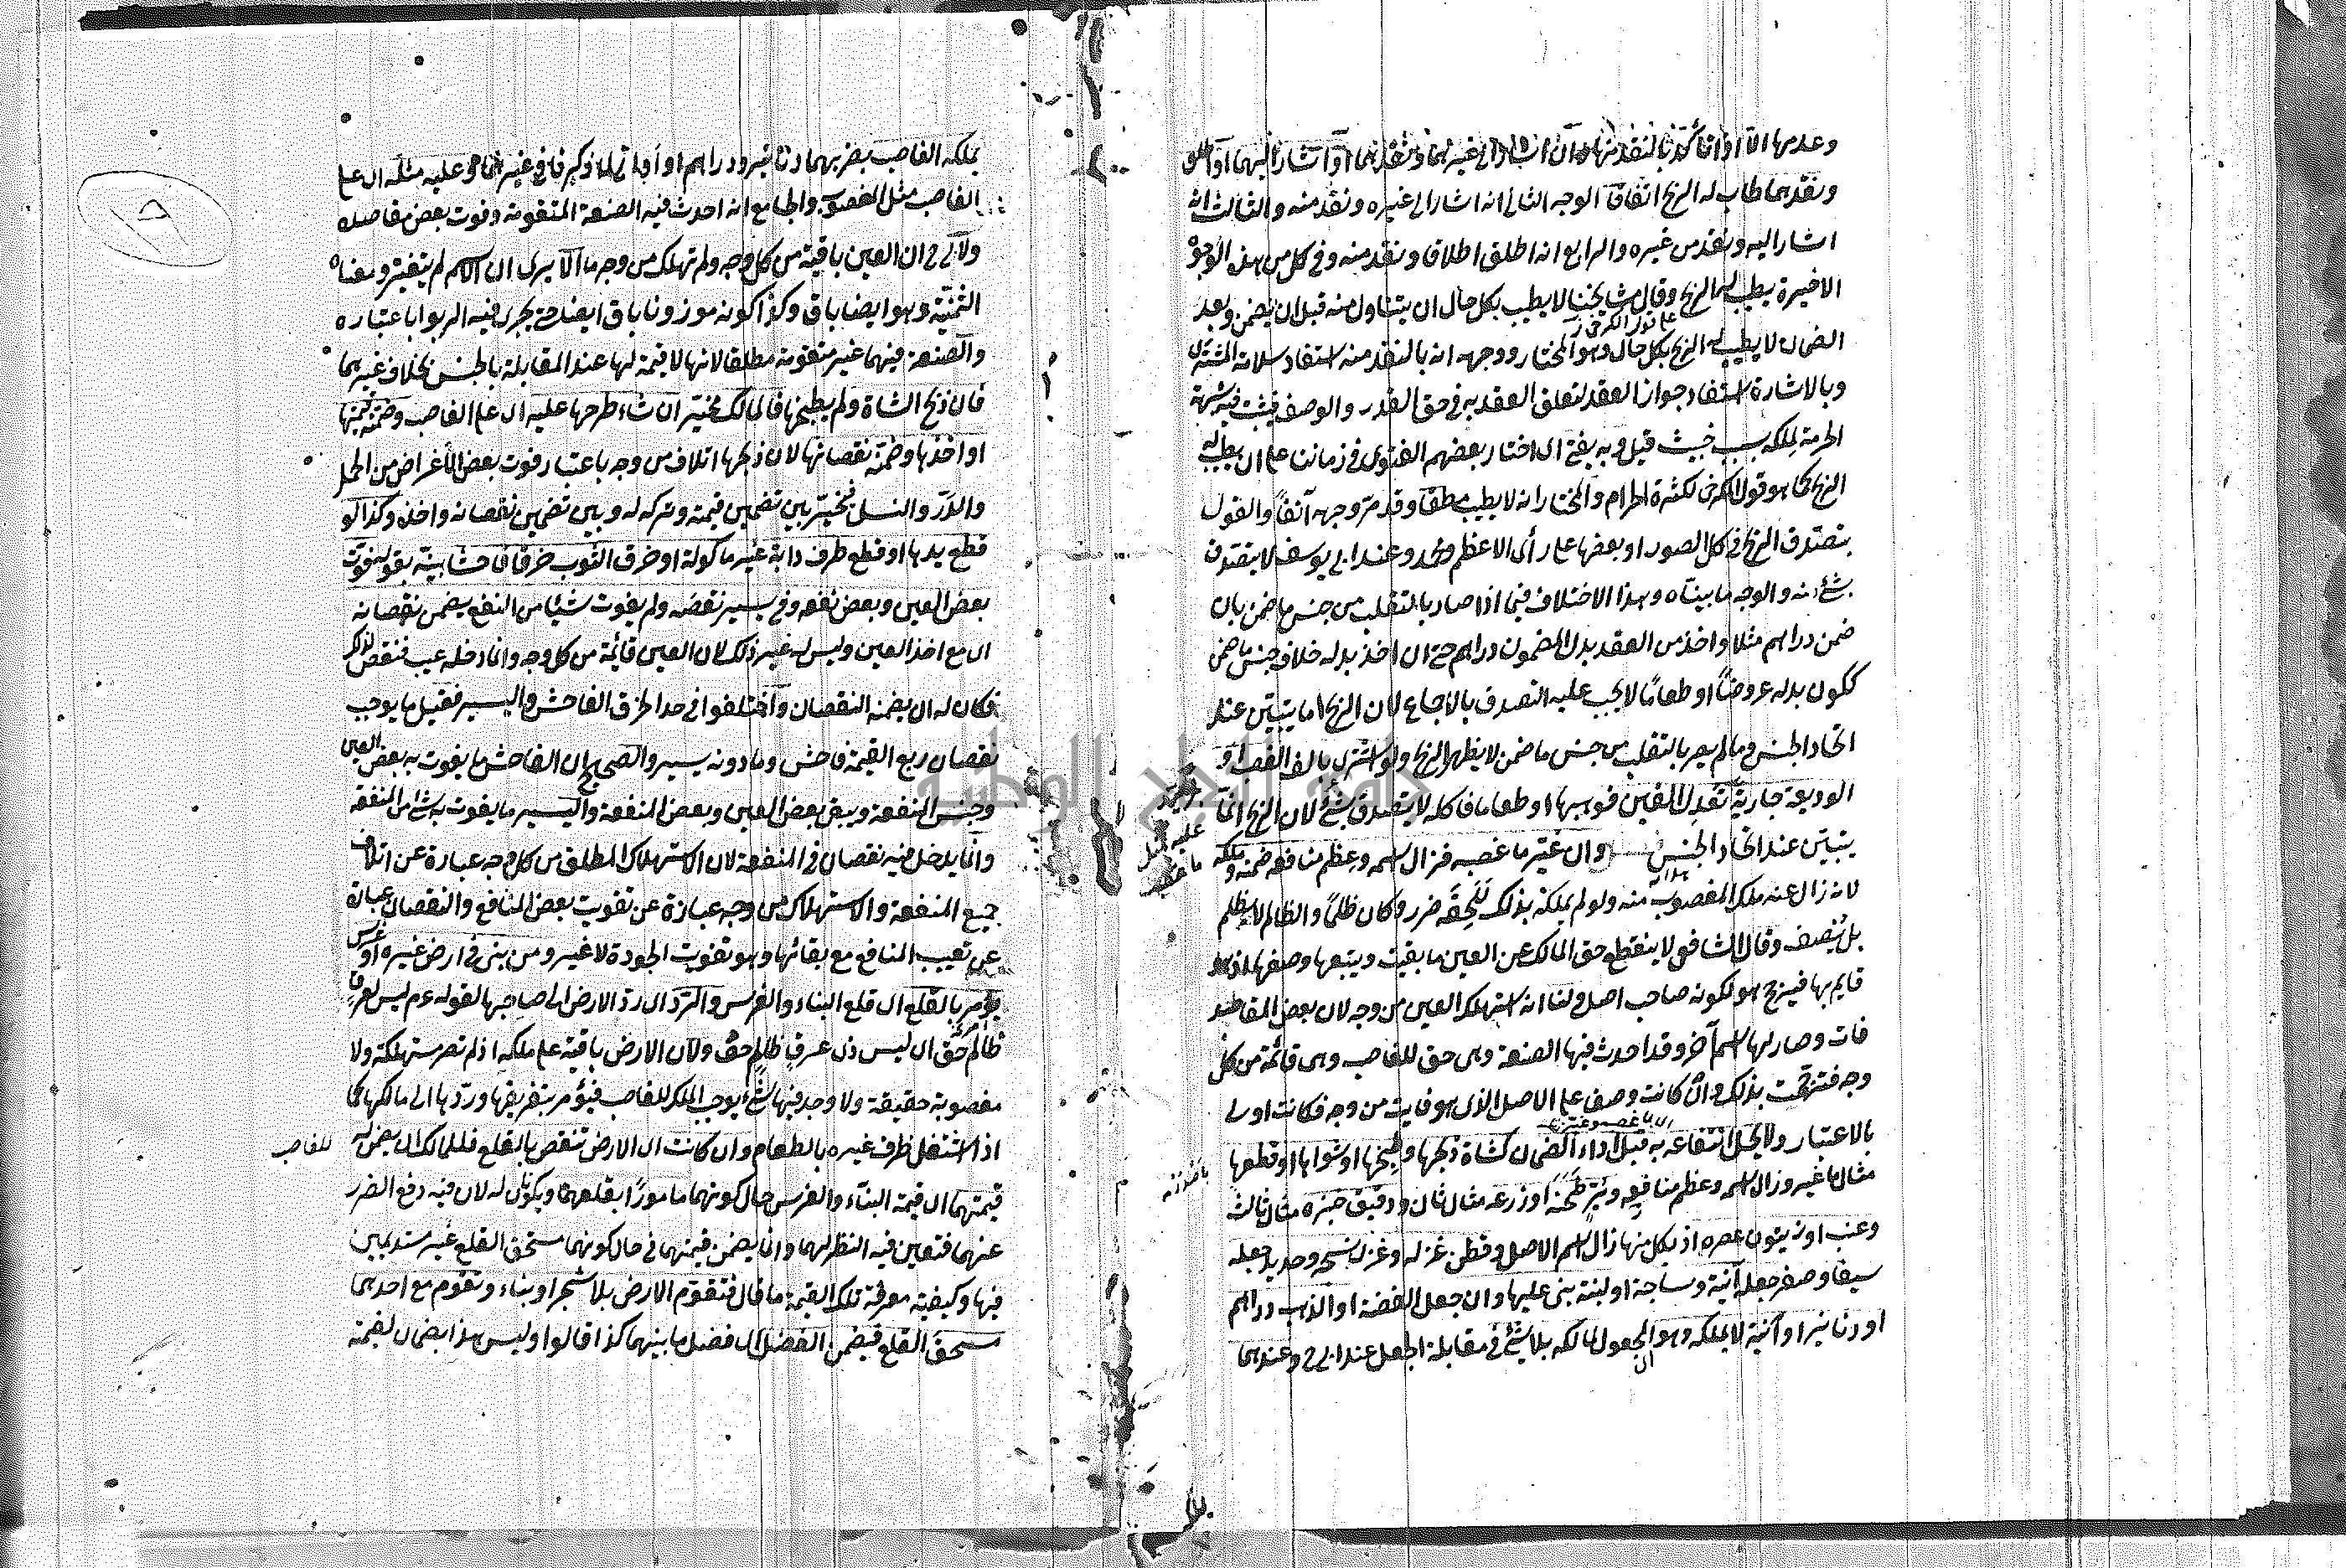 وعدمها الا اذا تأكد بالنقد منها وان اشار الى غيرهما ونقدهما او اشار اليهما او اطلق
ونقدهما طاب له الربح اتفاقا الوجه الثاني انه اشار الى غيره ونقد منه والثالث انه
اشار اليه ونقد من غيره والرابع انه اطلق اطلاقا ونقد منه وفي كل من هذه الوجوه
الاخيرة يطيب له الربح وقال مشايخنا لا يطيب بكل حال ان يتناول منه قبل ان يضمن وبعد
على قول الكرخي
الضمان لا يطيب له الربح بكل حال وهو المختار ووجهه انه بالنقد منه استفاد سلامة المشترى
وبالاشارة استفاد جواز العقد لتعلق العقد به في حق القدر والوصف فيثبت فيه شبهة
الحرمة لملكه بسبب خبيث قيل وبه يفتى اى اختار بعضهم الفتوى في زماننا على ان يطيب له
الربح كما هو قول الكرخى لكثرة الحرام والمختار انه لا يطيب مطلقا وقد مرّ وجهه آنفاً والقول
بتصدق الربح في كل الصور او بعضها على رأى الاعظم ومحمد وعند ابى يوسف لا يتصدق
بشئ منه والوجه ما بيناه وهذا الاختلاف فيما اذا صار بالتقلب من جنس ما ضمن بان
ضمن دراهم مثلا واخذ من العقد بدل المضمون دراهم حتى ان اخذ بدله خلاف جنس ما ضمن
ككون بدله عروضاً او طعامًا لا يجب عليه التصدق بالاجماع لان الربح انما يتبيّن عند
اتحاد الجنس وما لم يصر بالتقلب من جنس ما ضمن لا يظهر الربح ولو اشترى بالف الغصب او
الوديعة جارية تعدل الفين فوهبها او طعاما فاكله لا يتصدق بشئ لان الربح انما
يتبيّن عند اتحاد الجنس وان غيّر ما غصبه فزال اسمه وعظم منافعه ضمنه وملكه
لانه زال عنه ملك المغصوب منه ولو لم يملكه بذلك لَلَحِقَه ضرر وكان ظلمًا والظالم لا يظلم
بل يُنصف وقال الشافعى لا ينقطع حق المالك عن العين ما بقيت ويتبعها وصفها اذ هو
قايم بها فيرجح هو لكونه صاحب اصل ولنا انه استهلك العين من وجه لان بعض المقاصد
فات وصار لها اسم آخر وقد احدث فيها الصنعة وهى حق للغاصب وهى قائمة من كل
وجه فترجحت بذلك وان كانت وصفى على الاصل الذى هو فايت من وجه فكانت اولى
بالاعتبار ولا يحل انتفاعه به قبل اداء الضمان كشاة ذبحها وطبخها او شواها او قطعها
مثال ما غير وزال اسمه وعظم منافعه وبُرّ طَحَنَه او زرعه مثال ثان ودقيق خبزه مثال ثالث
وعنب او زيتون عصره اذ بكل منها زال اسم الاصل وقطن غزله وغزل نسجه وحديد جعله
سيفا وصفر جعله آنية وساجة او لبنة بنى عليها وان جعل الفضة او الذهب دراهم
او دنانير او آنية لا يملكه وهو المجعول لمالكه بلا شئ في مقابلة الجعل عند ابى ح وعندهما
يملكه الغاصب بضربهما دنانير ودراهم او اوانى وعليه مثله اى على
الغاصب مثل المغصوب والجامع انه احدث فيه الصنعة المتقومة وفوت بعض مقاصده
ولابى ح ان العين باقية من كل وجه ولم تهلك من وجه ما الا يرى ان الاسم لم يتغير ومعناه
الثمنيّة وهو ايضا باق وكذا كونه موزونا باق ايضا حتى يجرى فيه الربوا باعتباره
والصنعة فيهما غير متقومة مطلقا لانها لا قيمة لها عند المقابلة بالجنس بخلاف غيرهما
فان ذبح الشاة ولم يطبخها فالمالك مخيّر ان شاء طرحها عليه اى على الغاصب وضمّنه قيمتها
او اخذها وضمّنه نقصانها لان ذبحها اتلاف من وجه باعتبار فوت بعض الاغراض من الحمل
والدَرّ والنسل فيخيّر بين تضمين قيمته وتركه له وبين تضمين نقصانه واخذه وكذا لو
قطع يدها او قطع طرف دابة غير ماكولة او خرق الثوب خرقا فاحشا بينه بقوله فوت
بعض العين وبعض نفعه وفى يسير نقصه ولم يفوت شيئا من النفع يضمن نقصانه
اى مع اخذ العين وليس له غير ذلك لان العين قائمة من كل وجه وانما دخله عيب فنقص لذلك
فكان له ان يضمنه النقصان واختلفوا في حد الخرق الفاحش واليسير فقيل ما يوجب
نقصان ربع القيمة فاحش وما دونه يسير والصحيح ان الفاحش ما يفوت به بعض العين
وجنس المنفعة ويبقى بعض العين وبعض المنفعة واليسير ما يفوت به شئ من المنفعة
وانما يدخل فيه نقصان في المنفعة لان الاستهلاك المطلق من كل وجه عبارة عن اتلاف
جميع المنفعة والاستهلاك من وجه عبارة عن تفويت بعض المنافع والنقصان عبارة
عن تعييب المنافع مع بقائها وهو تفويت الجودة لا غير ومن بنى في ارض غيره او غرس
يؤمر بالقلع اى قلع البناء والغرس والردّ اى ردّ الارض الى صاحبها لقوله ءم ليس لعرق
ظالم حق اى ليس ذى عرق ظالم حق ولان الارض باقية على ملكه اذ لم تصر مستهلكة ولا
مغصوبة حقيقة ولا وجد فيها شئ يوجب الملك للغاصب فيؤمر بتفريغها وردّها الى مالكها كما
اذا اشتغل ظرف غيره بالطعام وان كانت اى الارض تنقص بالقلع فللمالك ان يضمن له
للغاصب
قيمتهما اى قيمة البناء والغرس حال كونهما مامورًا بقلعهما ويكونان له لان فيه دفع الضرر
عنهما فتعين فيه النظر لهما وانما يضمن قيمتهما في حال كونهما مستحق القلع غير مستديمين
فيها وكيفية معرفة تلك القيمة ما قال فتقوّم الارض بلا شجر او بناء وتقوم مع احدهما
مستحق القلع فيضمن الفضل اى فضل ما بينهما كذا قالوا وليس هذا بضمان لقيمة
جامعة النجاح الوطنية